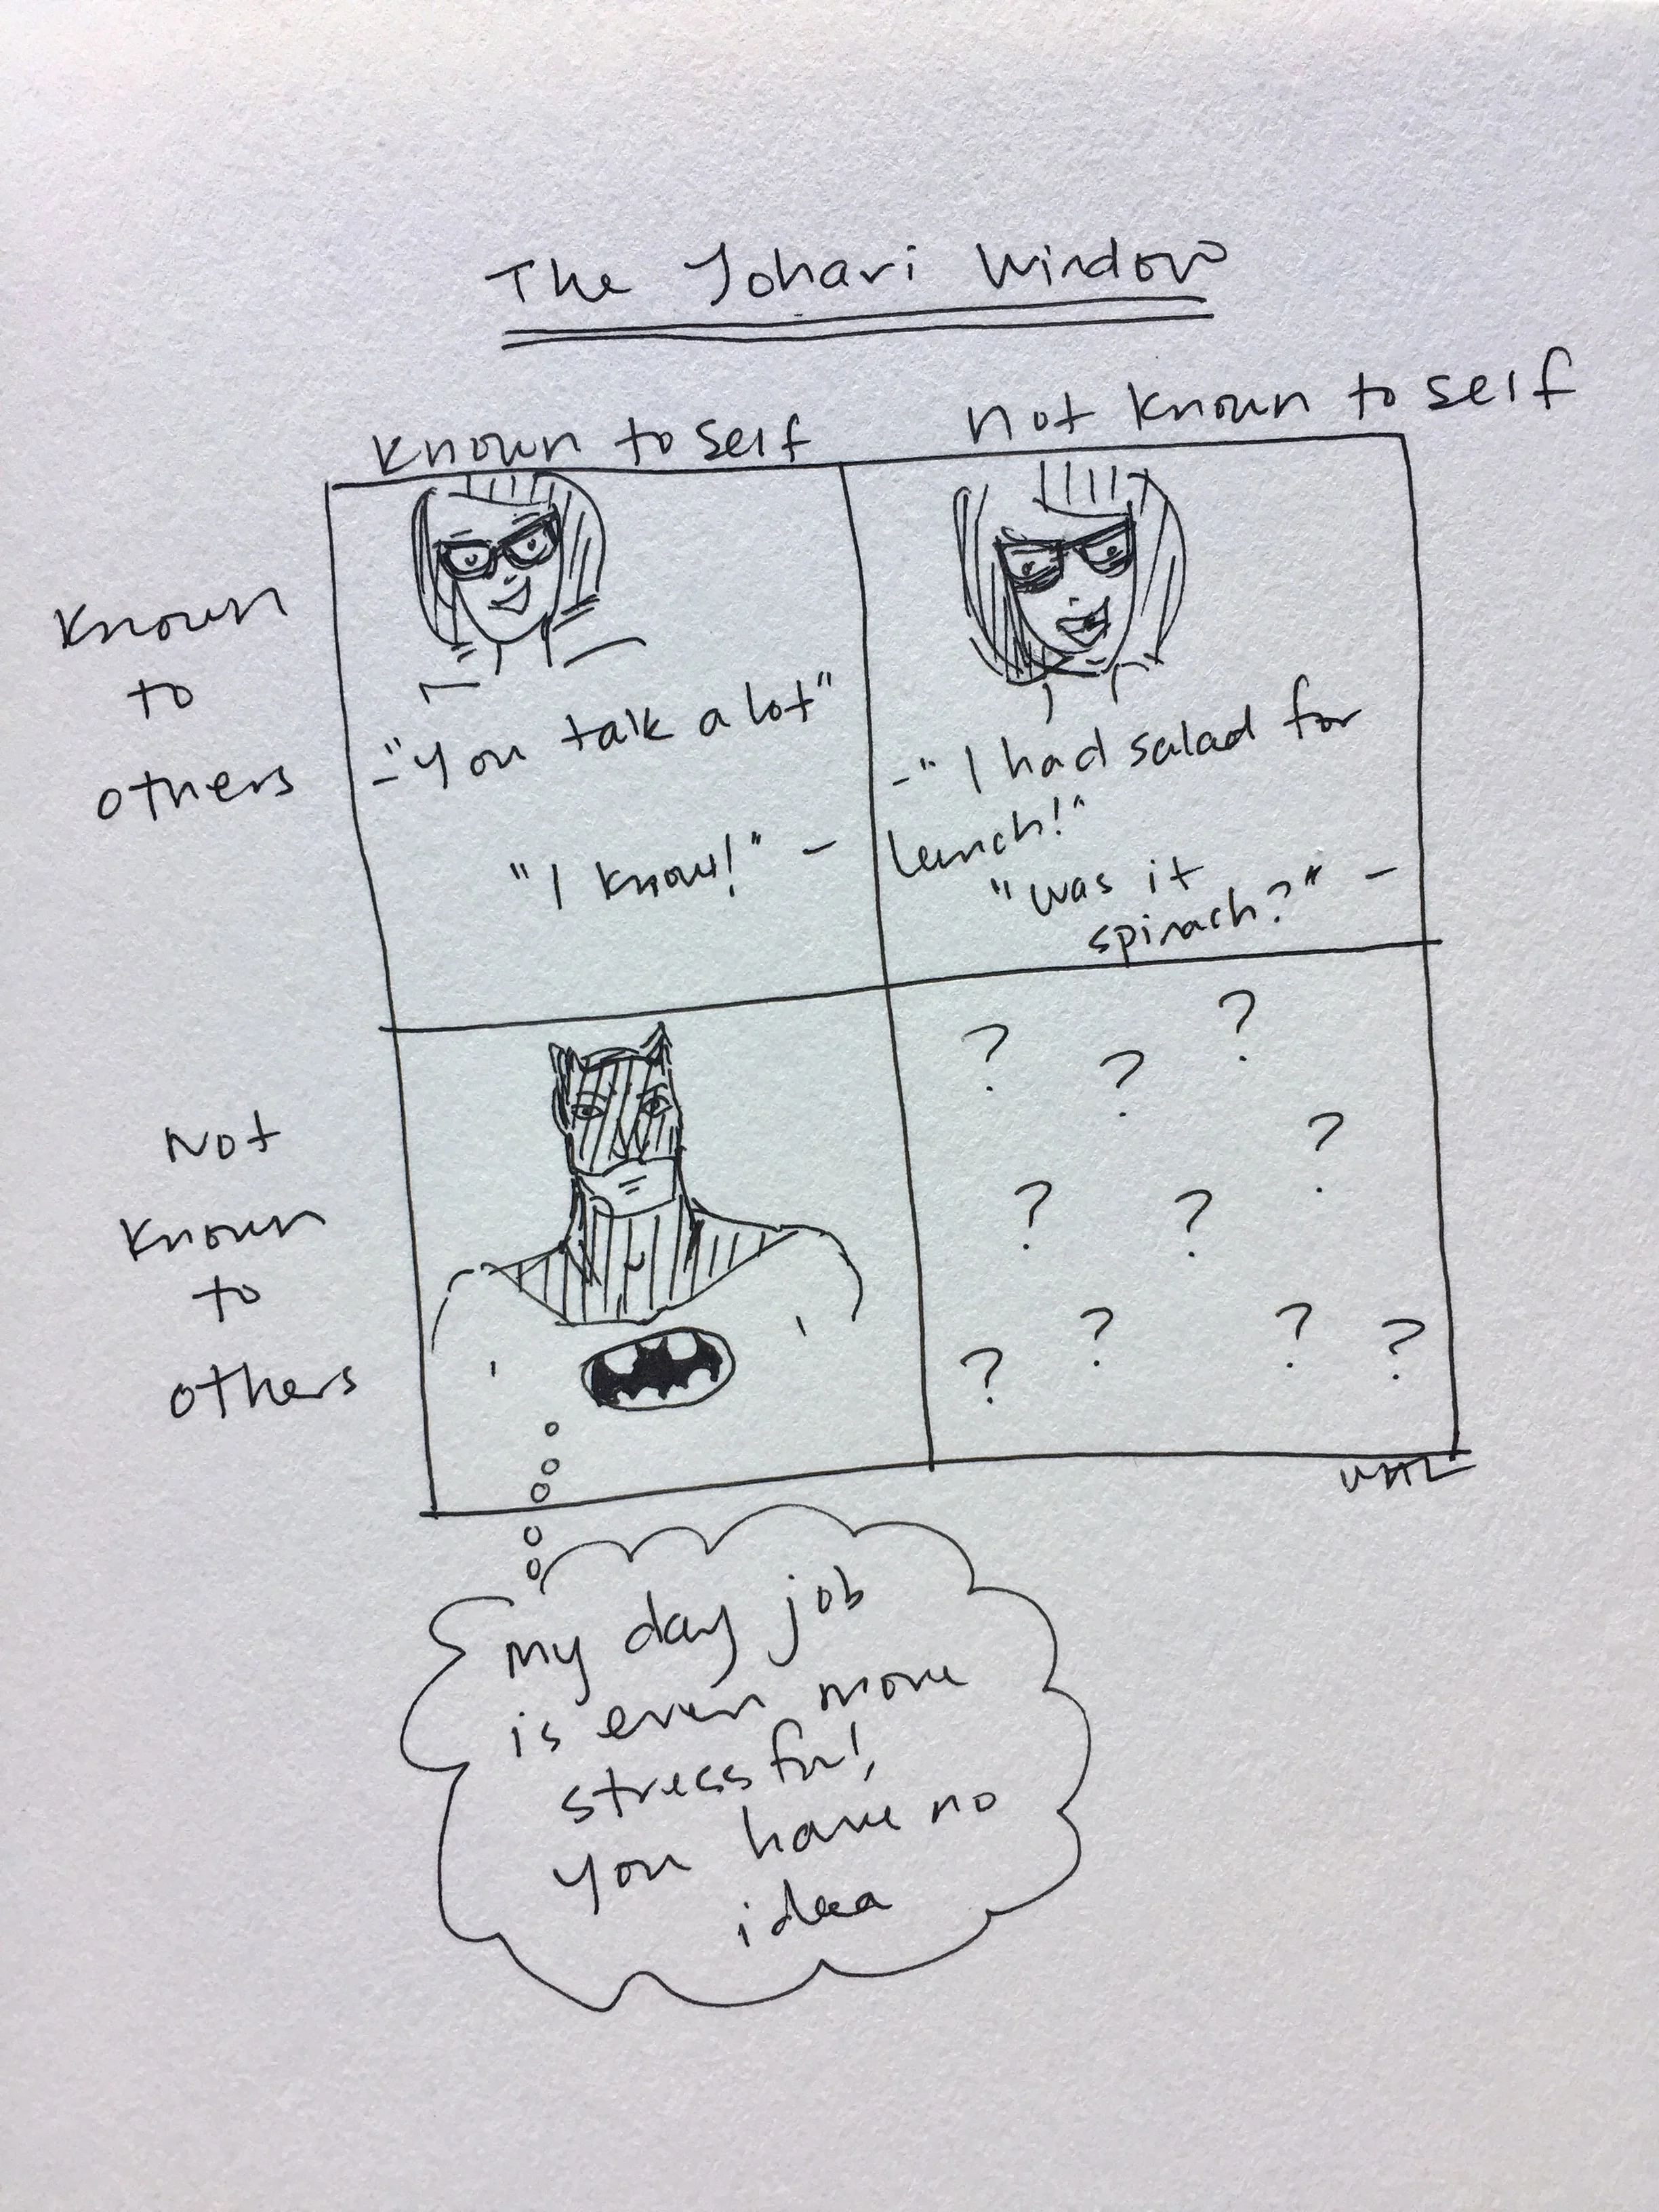 The Johari Window
Known to self
not known to self
Known
to
others
-"You talk a lot"
"I know!" -
-"I had salad for
lunch!"
"was it
spinach?" -
Not
Known
to
others
? ? ?
?
? ?
? ? ? ?
my day job
is even more
stressful,
you have no
idea